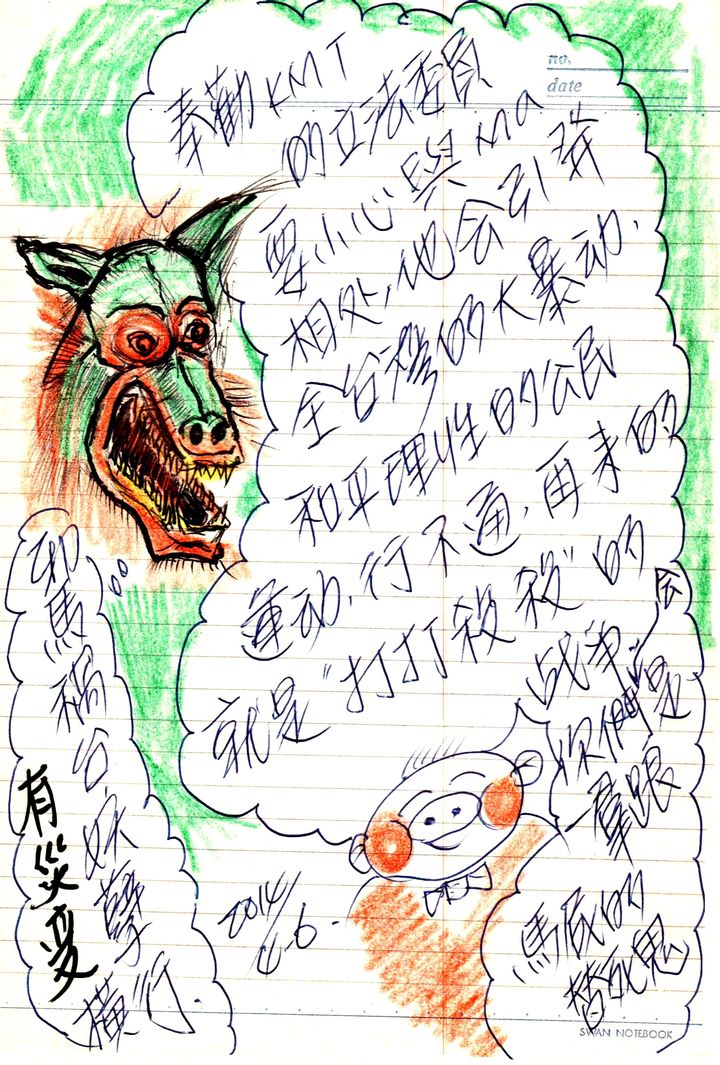 no.
date
奉勸KMT
的立法委員
要小心與Ma
相处,他会引發
全台灣的大暴动.
和平理性的公民
運动,行不通,再来的
就是"打打殺殺"的
战争.
你們是
一羣跟
馬厩的
替死鬼
馬禍台,妖孽橫行.
有災变
2014/4-6.
SWAN NOTEBOOK